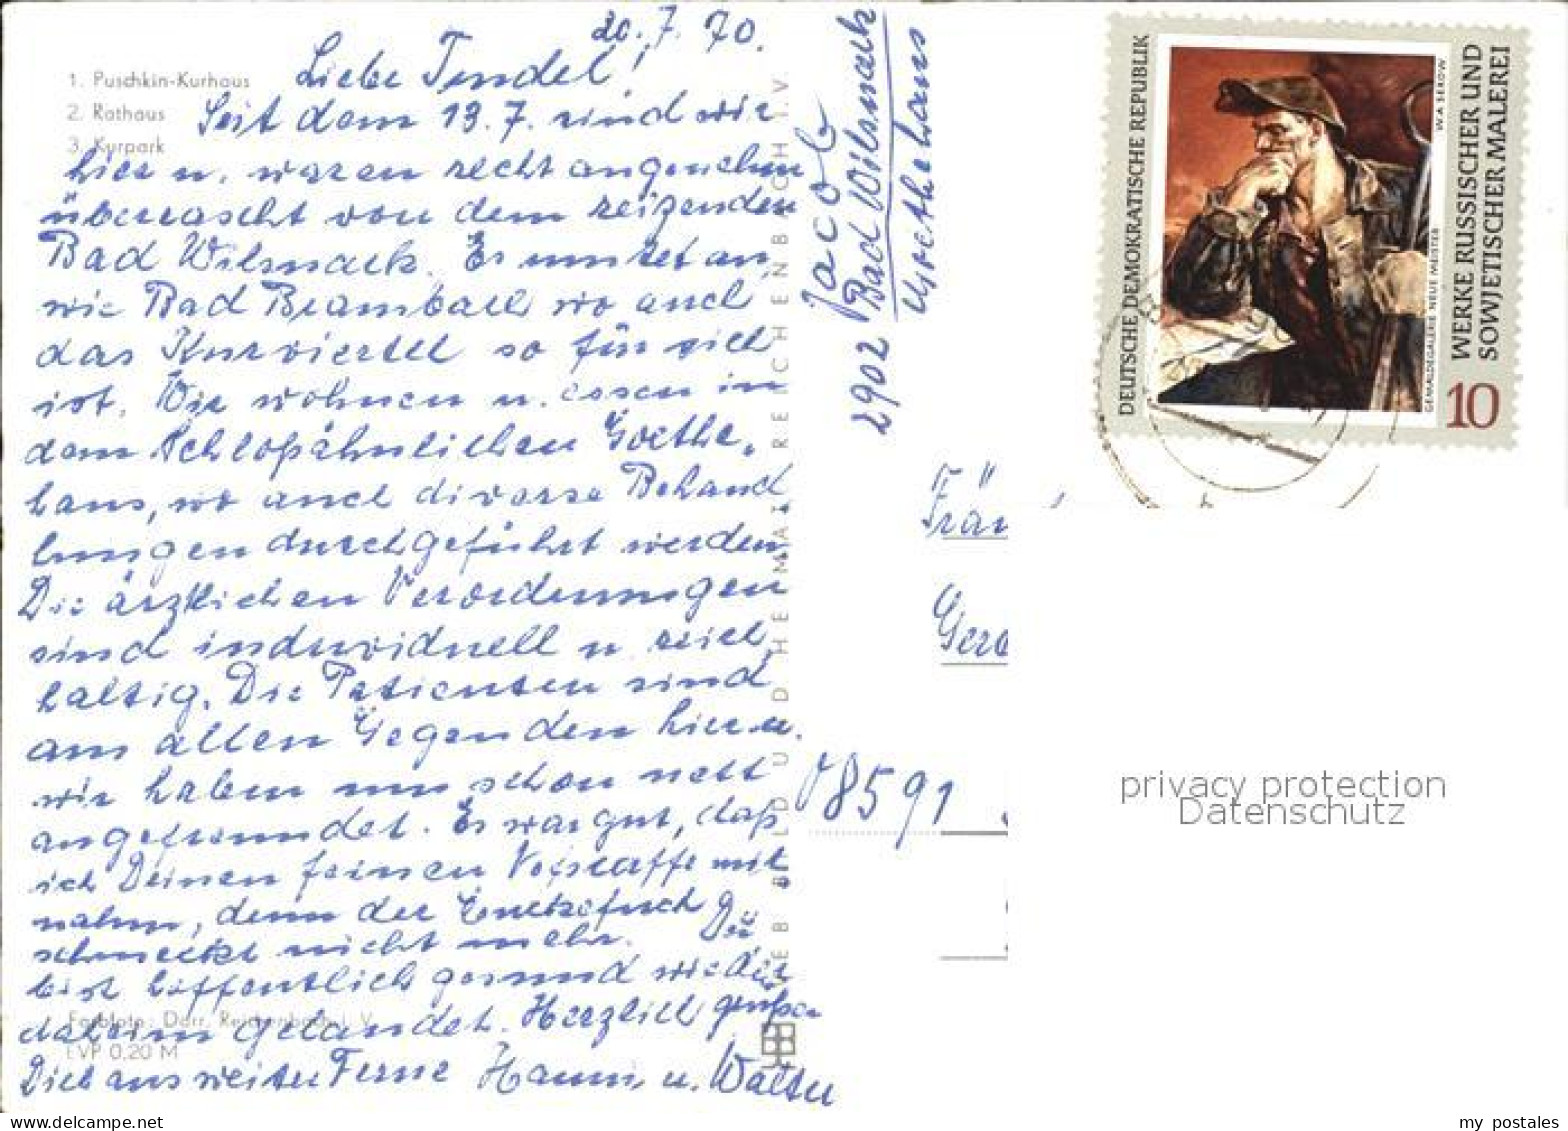 1. Puschkin-Kurhaus
2. Rathaus
3. Kurpark
20.7.70.
Liebe Tendel!
Seit dem 13.7. sind wir
hier u. waren recht angenehm
überrascht von dem reizenden
Bad Wilsnack. Es mutet an,
wie Bad Brambach wo auch
das Kurviertel so für sich
ist. Wir wohnen u. essen in
dem schloßähnlichen Goethe-
haus, wo auch diverse Behand
lungen durchgeführt werden.
Die ärztlichen Verordnungen
sind individuell u. reich
haltig. Die Patienten sind
aus allen Gegenden hier u.
wir haben uns schon nett
angefreundet. Es war gut, daß
ich Deinen feinen mit
nahm, denn der
schmeckt nicht mehr. Du
bist hoffentlich gesund wieder
daheim gelandet. Herzlich grüßen
Dich aus weiter Ferne Hanni u. Walter
Farbfoto: Darr, Reichenbach i. V.
EVP 0,20 M
VEB BILD UND HEIMAT REICHENBACH I. V.
Jacob
2902 Bad Wilsnack
Goethehaus
DEUTSCHE DEMOKRATISCHE REPUBLIK
W. A. SEROW
GEMÄLDEGALERIE NEUE MEISTER
WERKE RUSSISCHER UND
SOWJETISCHER MALEREI
10
Frä
Gera
08591
privacy protection
Datenschutz
my postales